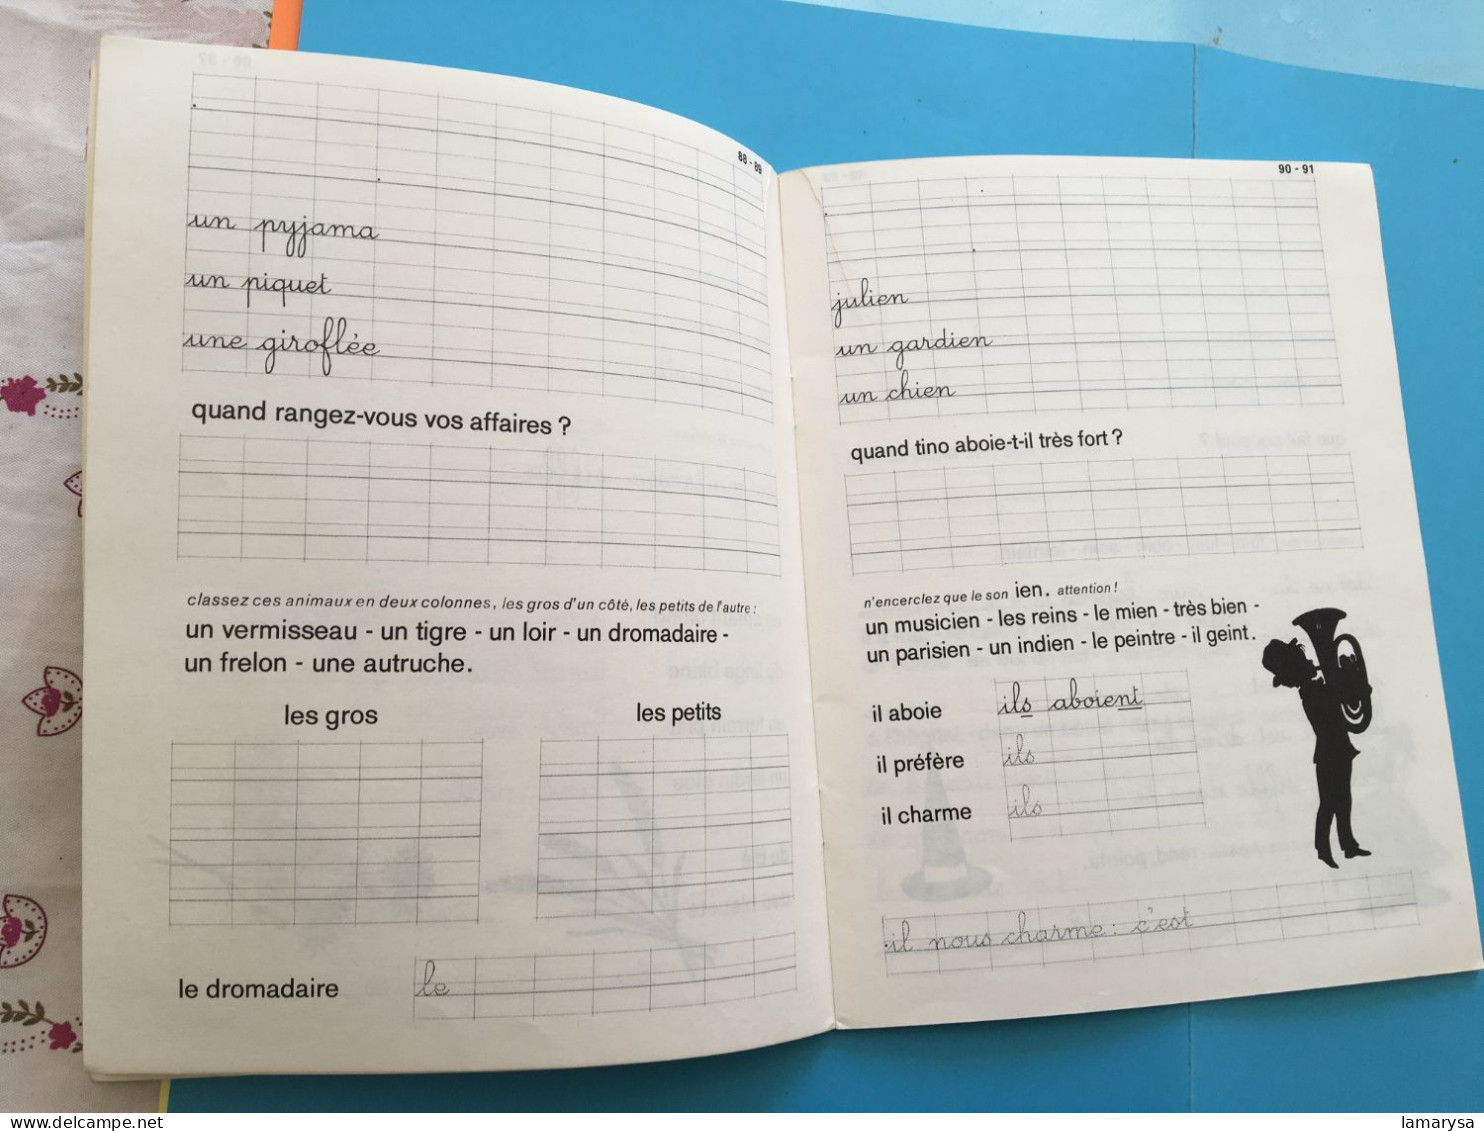 88 - 89
un pyjama
un piquet
une giroflée
quand rangez-vous vos affaires ?
classez ces animaux en deux colonnes, les gros d'un côté, les petits de l'autre :
un vermisseau - un tigre - un loir - un dromadaire -
un frelon - une autruche.
les gros
les petits
le dromadaire
le
90 - 91
julien
un gardien
un chien
quand tino aboie-t-il très fort ?
n'encerclez que le son ien. attention !
un musicien - les reins - le mien - très bien -
un parisien - un indien - le peintre - il geint.
il aboie
ils aboient
il préfère
ils
il charme
ils
il nous charme : c'est
www.delcampe.net
lamarysa